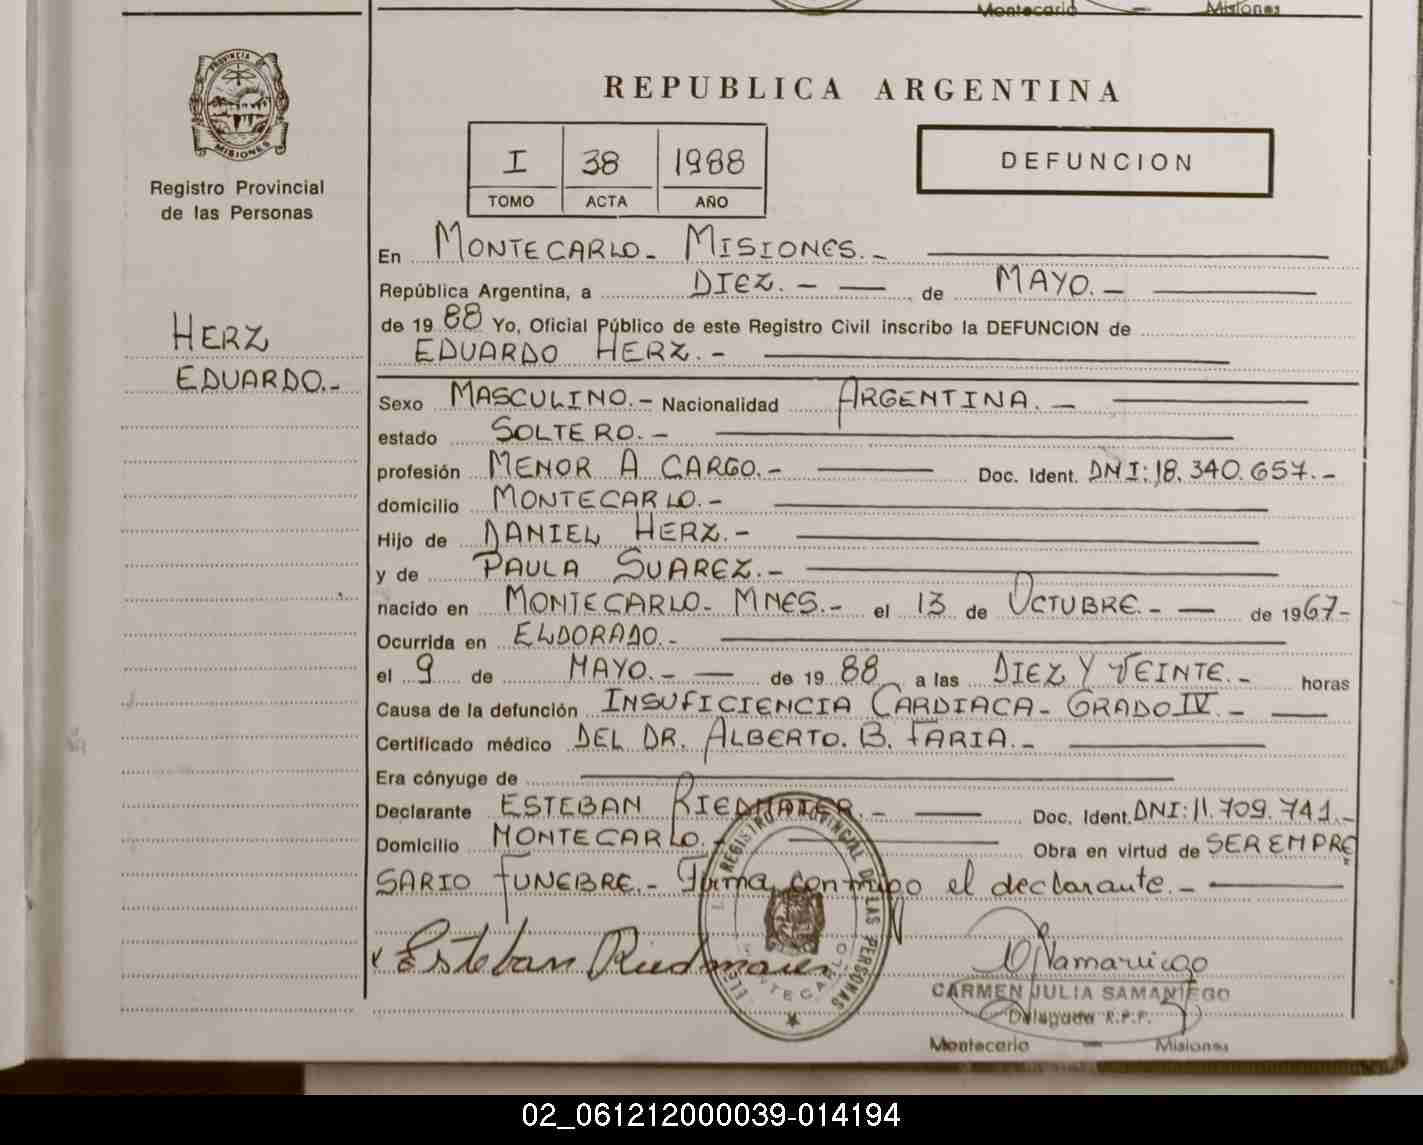 Montecarlo — Misiones
PROVINCIA DE
MISIONES
Registro Provincial
de las Personas
HERZ
EDUARDO.-
REPUBLICA ARGENTINA
I 38 1988
TOMO ACTA AÑO
DEFUNCION
En MONTECARLO- MISIONES.-
República Argentina, a DIEZ.- — de MAYO.-
de 19 88 Yo, Oficial Público de este Registro Civil inscribo la DEFUNCION de
EDUARDO HERZ.-
Sexo MASCULINO.- Nacionalidad ARGENTINA.-
estado SOLTERO.-
profesión MENOR A CARGO.- Doc. Ident. DNI: 18.340.657.-
domicilio MONTECARLO.-
Hijo de DANIEL HERZ.-
y de PAULA SUAREZ.-
nacido en MONTECARLO- MNES.- el 13 de OCTUBRE.- — de 1967-
Ocurrida en ELDORADO.-
el 9 de MAYO.- — de 19 88 a las DIEZ Y VEINTE.- horas
Causa de la defunción INSUFICIENCIA CARDIACA- GRADO IV.-
Certificado médico DEL DR. ALBERTO. B. FARIA.-
Era cónyuge de
Declarante ESTEBAN RIEDMAIER.- Doc. Ident. DNI: 11.709.741.-
Domicilio MONTECARLO.- Obra en virtud de SER EMPRE
SARIO FUNEBRE.- Firma conmigo el declarante.-
Esteban Riedmaier
REGISTRO PROVINCIAL DE LAS PERSONAS
MONTECARLO
CARMEN JULIA SAMANIEGO
Delegada R.P.P.
Montecarlo — Misiones
02_061212000039-014194